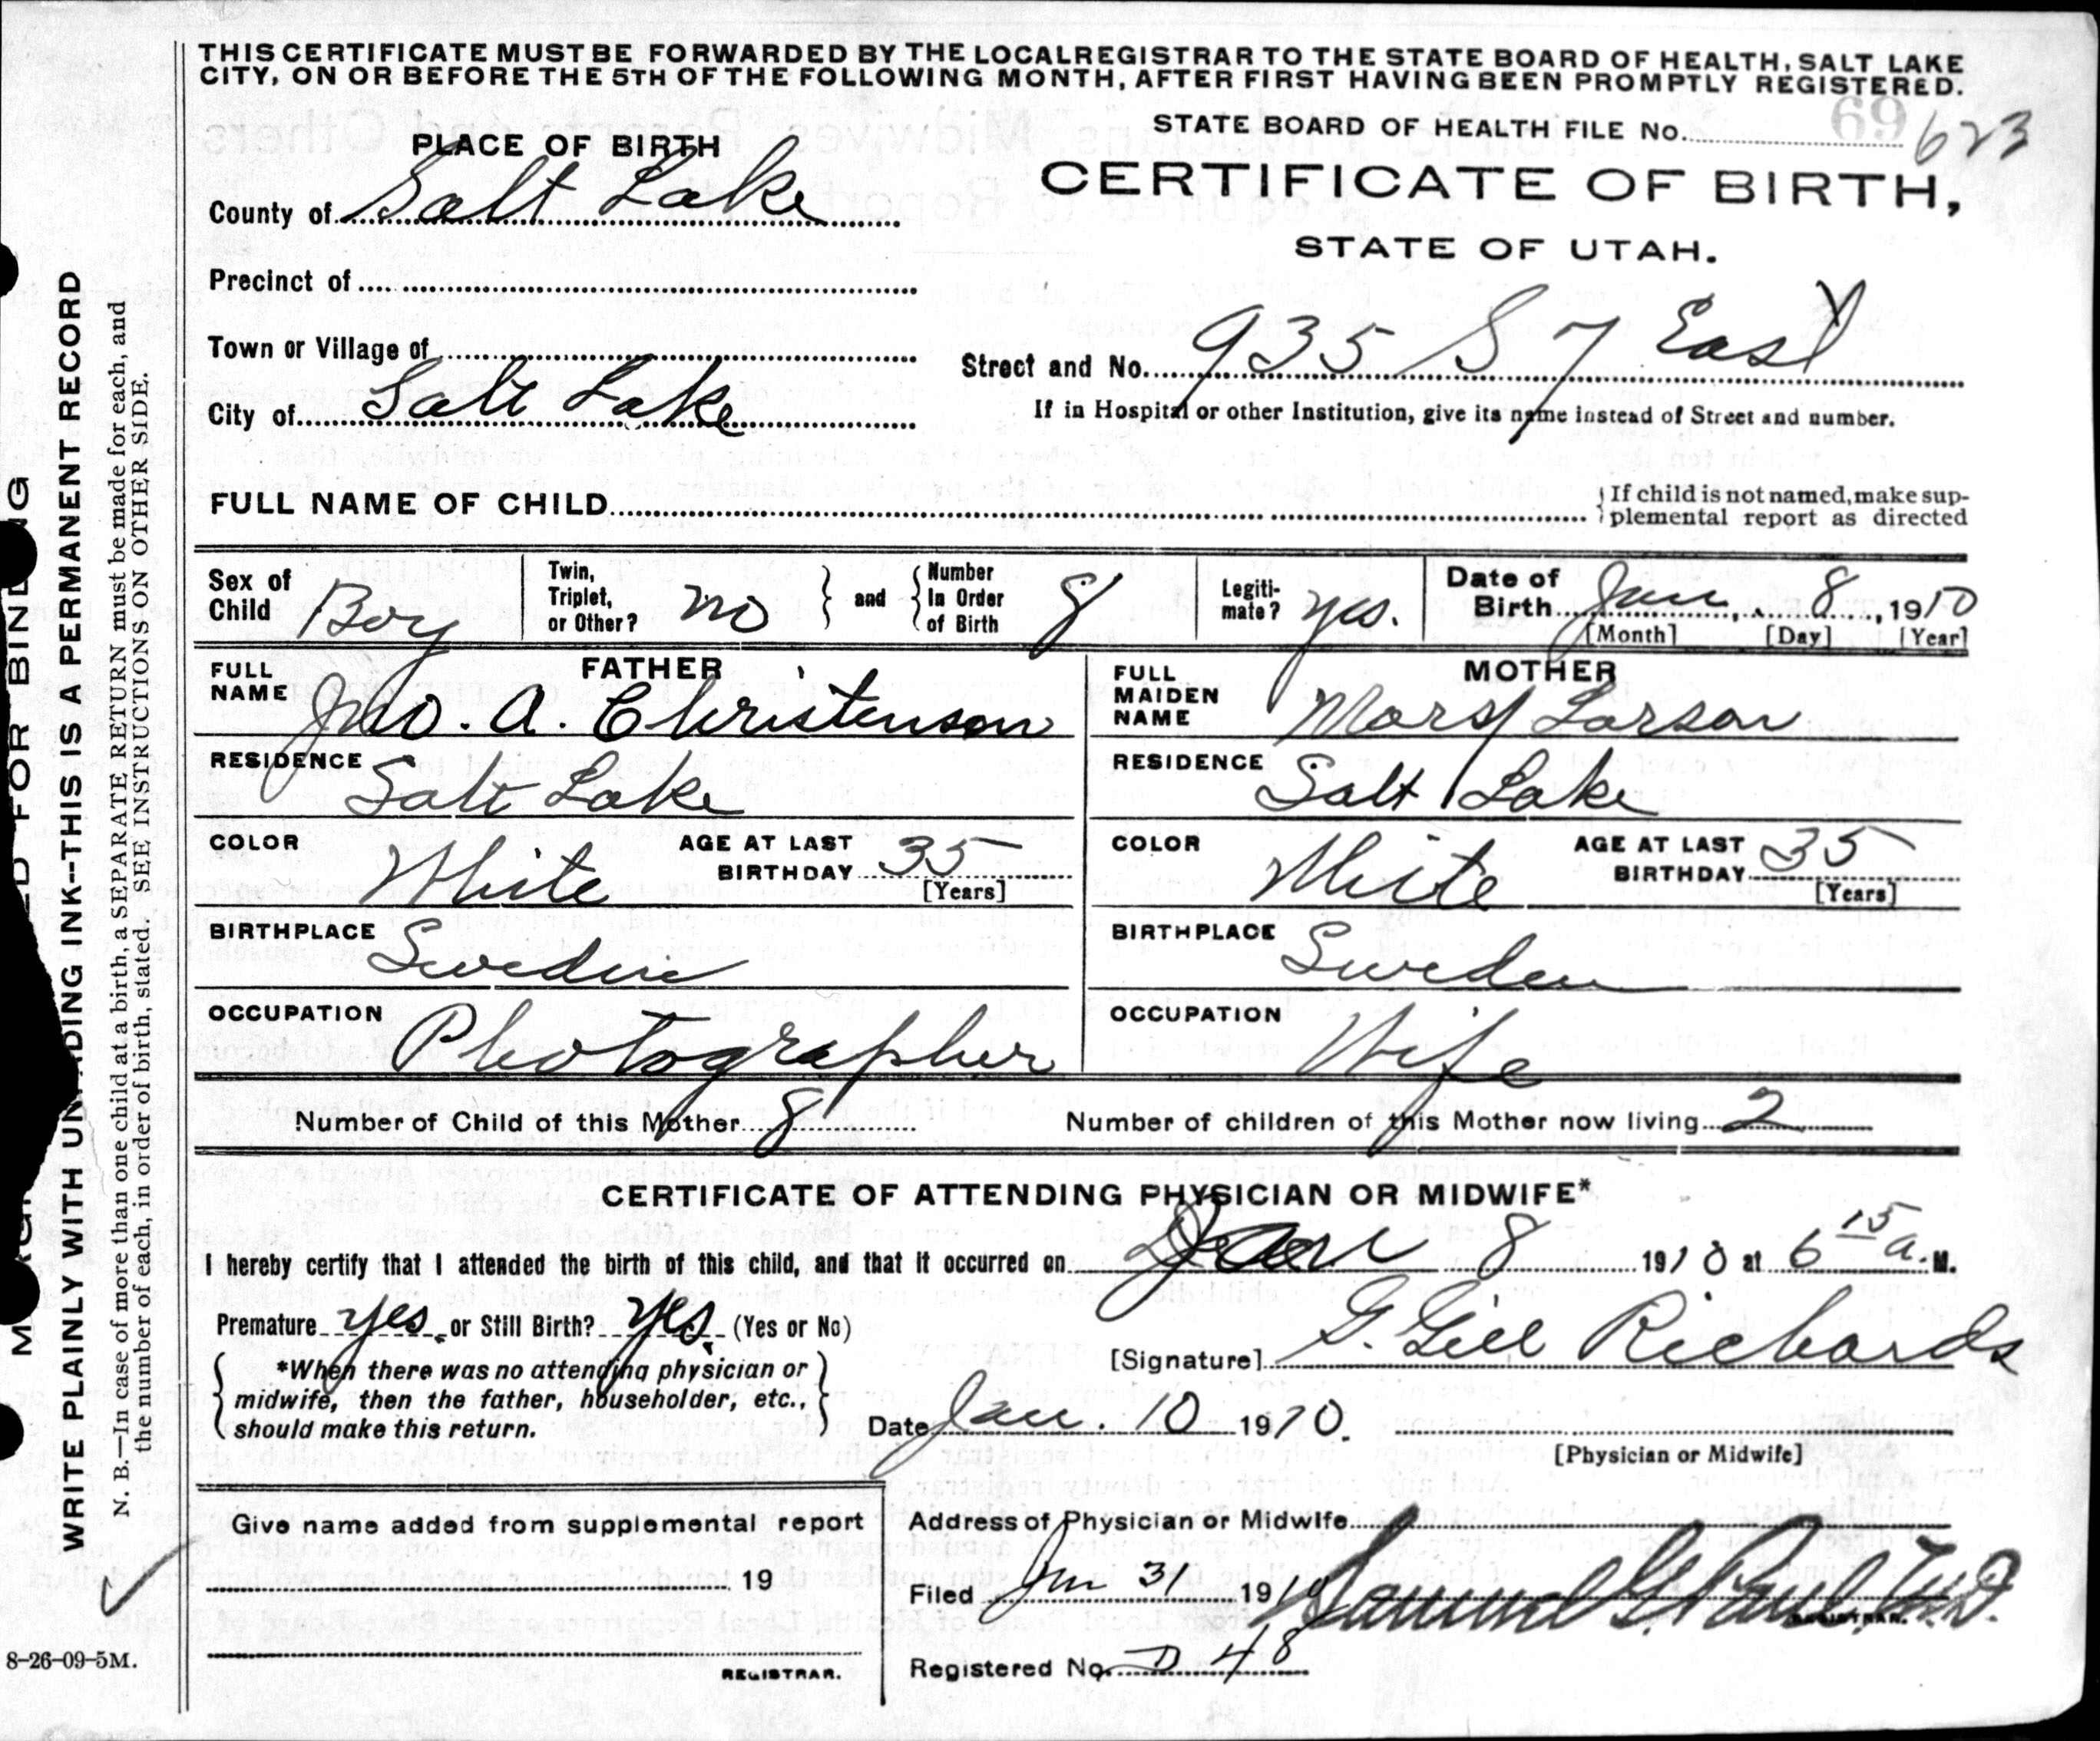 THIS CERTIFICATE MUST BE FORWARDED BY THE LOCAL REGISTRAR TO THE STATE BOARD OF HEALTH, SALT LAKE
CITY, ON OR BEFORE THE 5TH OF THE FOLLOWING MONTH, AFTER FIRST HAVING BEEN PROMPTLY REGISTERED.
STATE BOARD OF HEALTH FILE No. 69 623
PLACE OF BIRTH
CERTIFICATE OF BIRTH,
County of Salt Lake
STATE OF UTAH.
Precinct of
Town or Village of
Street and No. 935 S 7 East
City of Salt Lake
If in Hospital or other Institution, give its name instead of Street and number.
FULL NAME OF CHILD
If child is not named, make sup-
plemental report as directed
Sex of Child Boy
Twin, Triplet, or Other? no
and
Number In Order of Birth 8
Legiti-mate? yes.
Date of Birth Jan 8, 1910
[Month] [Day] [Year]
FATHER
FULL NAME Jno. A. Christenson
RESIDENCE Salt Lake
COLOR White
AGE AT LAST BIRTHDAY 35
[Years]
BIRTHPLACE Sweden
OCCUPATION Photographer
MOTHER
FULL MAIDEN NAME Mary Larson
RESIDENCE Salt Lake
COLOR White
AGE AT LAST BIRTHDAY 35
[Years]
BIRTHPLACE Sweden
OCCUPATION Wife
Number of Child of this Mother 8
Number of children of this Mother now living 2
CERTIFICATE OF ATTENDING PHYSICIAN OR MIDWIFE*
I hereby certify that I attended the birth of this child, and that it occurred on Jan 8 1910 at 6 15 a. M.
Premature yes, or Still Birth? yes, (Yes or No)
[Signature] G. Gill Richards
*When there was no attending physician or
midwife, then the father, householder, etc.,
should make this return.
Date Jan. 10 1910.
[Physician or Midwife]
Give name added from supplemental report
19
REGISTRAR.
Address of Physician or Midwife
Filed Jan 31 1910 Samuel G. Paul, M.D.
REGISTRAR.
Registered No. D 48
8-26-09-5M.
WRITE PLAINLY WITH UNFADING INK--THIS IS A PERMANENT RECORD
N. B.—In case of more than one child at a birth, a SEPARATE RETURN must be made for each, and
the number of each, in order of birth, stated. SEE INSTRUCTIONS ON OTHER SIDE.
FOR BINDING